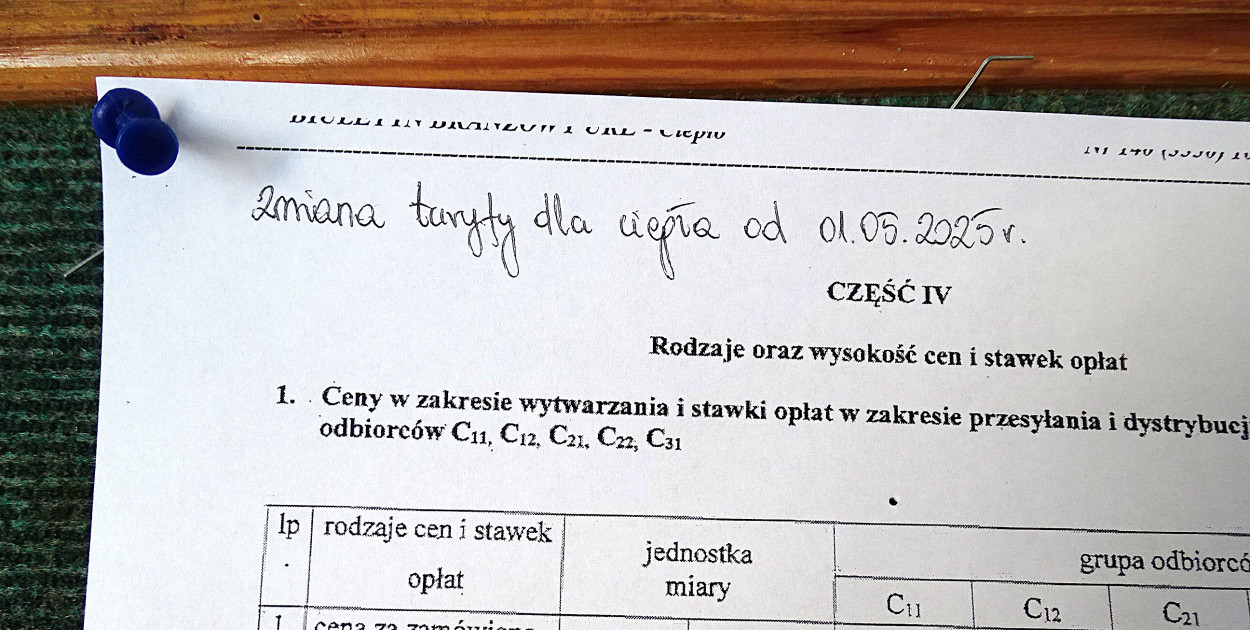 BIULETYN BRANŻOWY URE - Ciepło
Nr 140
Zmiana taryfy dla ciepła od 01.05.2025r.
CZĘŚĆ IV
Rodzaje oraz wysokość cen i stawek opłat
1. Ceny w zakresie wytwarzania i stawki opłat w zakresie przesyłania i dystrybucj
odbiorców C11, C12, C21, C22, C31
lp rodzaje cen i stawek opłat
jednostka miary
grupa odbiorcó
C11 C12 C21
1 cena za zamówioną